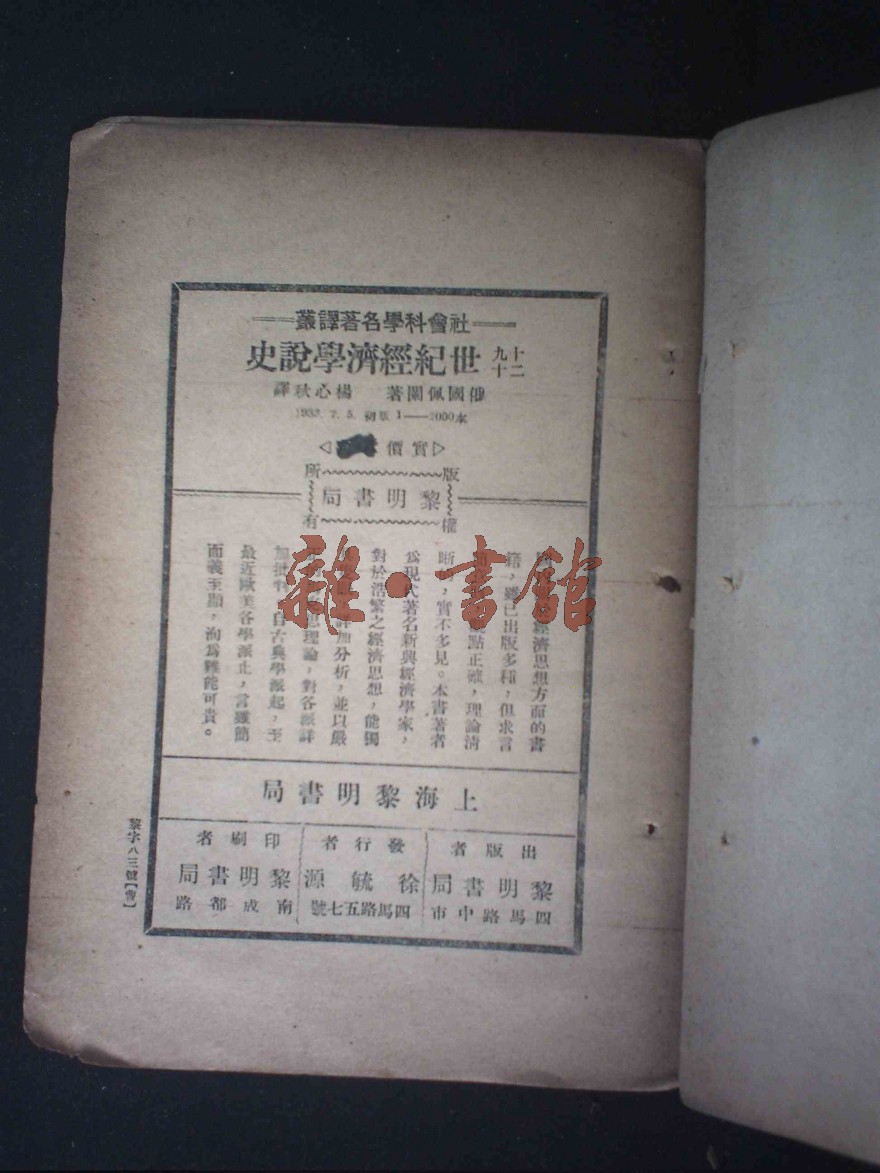 社會科學名著譯叢
十九二十世紀經濟學說史
俄國佩著 楊心秋譯
1933. 7. 5. 初版 1——2000本
實價
版權所有
黎明書局
經濟思想方面的書
籍，雖已出版多種，但求言
點正確，理論清
晰，實不多見。本書著者
爲現代著名新興經濟學家，
對於浩繁之經濟思想，能獨
詳加分析，並以嚴
思理論，對各派詳
加批判，自古典學派起，至
最近歐美各學派止，言雖簡
而義至顯，洵爲難能可貴。
上海黎明書局
出版者
黎明書局
四馬路中市
發行者
徐毓源
四馬路五七號
印刷者
黎明書局
南成都路
黎字八三號
雜·書館